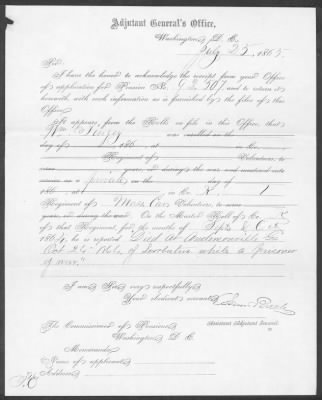 Adjutant General's Office,
Washington, D. C.
July 25, 1865.
Sir:
I have the honor to acknowledge the receipt from your Office
of application for Pension No. and to return it
herewith, with such information as is furnished by the files of this
Office.
It appears, from the Rolls on file in this Office, that
was enrolled on the
day of 186 , at in Co.
Regiment of Volunteers, to
serve years, or during the war, and mustered into
service as a private on the day of
186 , at , in Co. K 1
Regiment of Mass Cav Volunteers, to serve
years, or during the war. On the Muster Roll of Co. K
of that Regiment, for the months of Sept & Oct
1864, he is reported Died at Andersonville Ga
Oct 1864 of Scorbutus while a prisoner
of war."
I am, Sir, very respectfully,
Your obedient servant,
Assistant Adjutant General.
The Commissioner of Pensions,
Washington, D. C.
Memoranda:
Name of applicant,
Address,